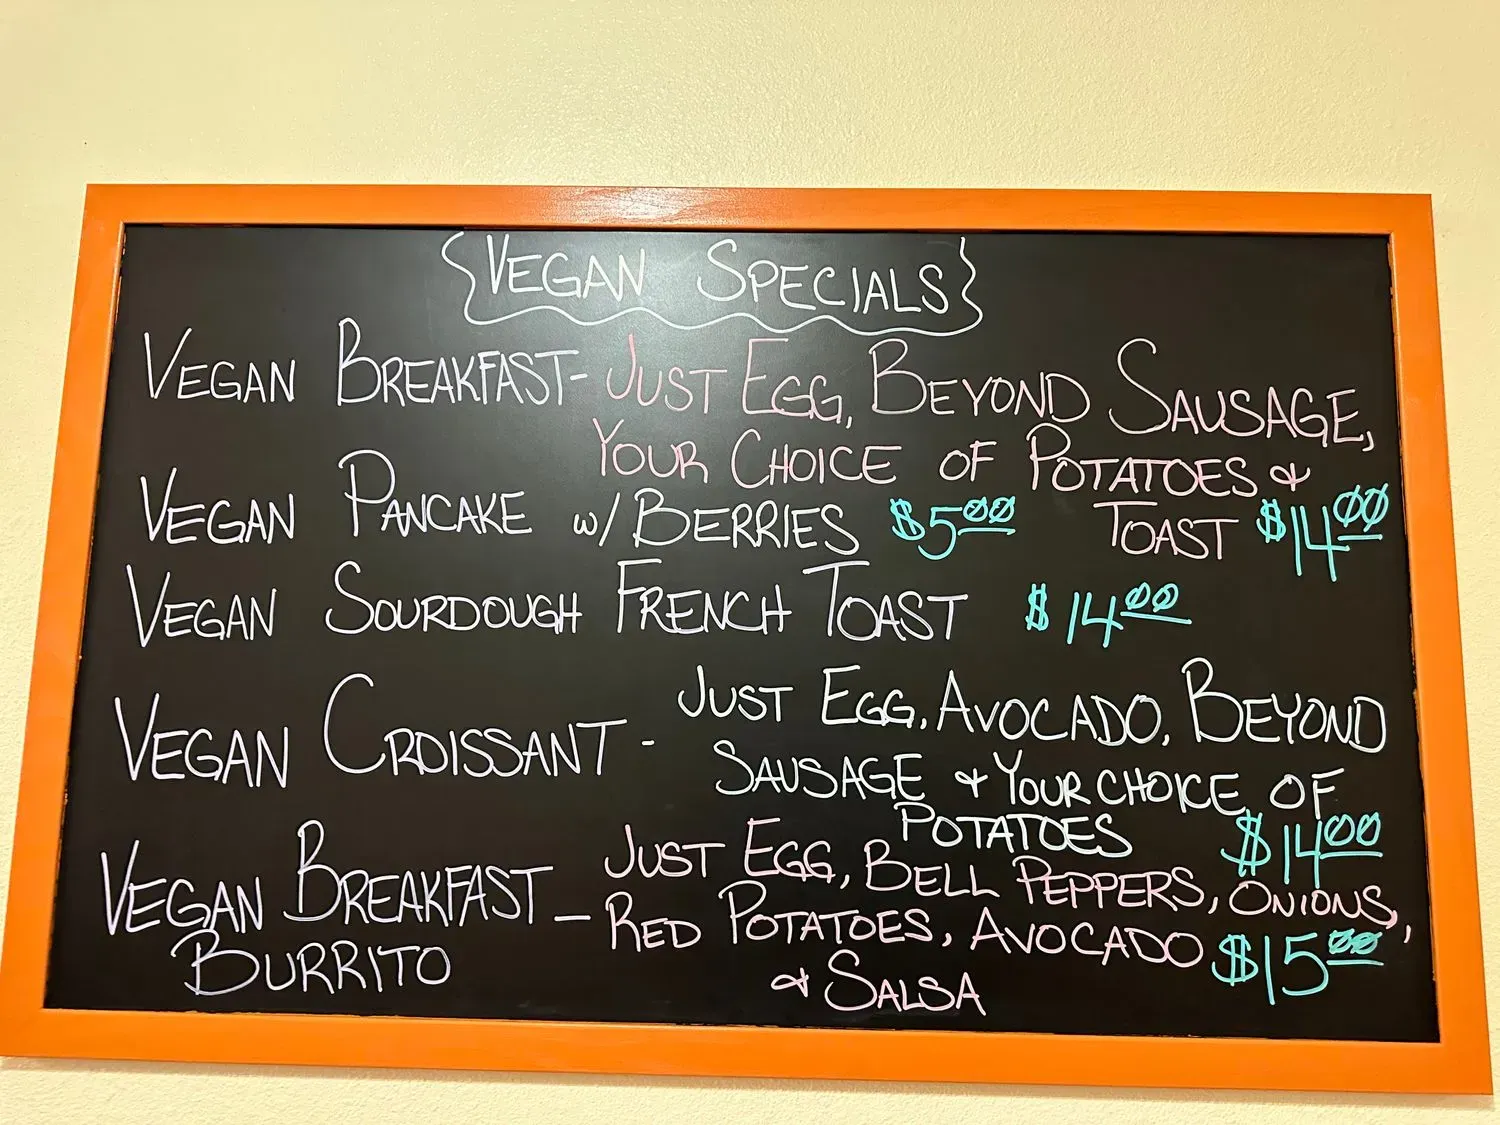 {VEGAN SPECIALS}
VEGAN BREAKFAST- JUST EGG, BEYOND SAUSAGE,
YOUR CHOICE OF POTATOES &
TOAST $14.00
VEGAN PANCAKE w/ BERRIES $5.00
VEGAN SOURDOUGH FRENCH TOAST $14.00
VEGAN CROISSANT - JUST EGG, AVOCADO, BEYOND
SAUSAGE & YOUR CHOICE OF
POTATOES $14.00
VEGAN BREAKFAST – JUST EGG, BELL PEPPERS, ONIONS,
BURRITO RED POTATOES, AVOCADO, $15.00
& SALSA